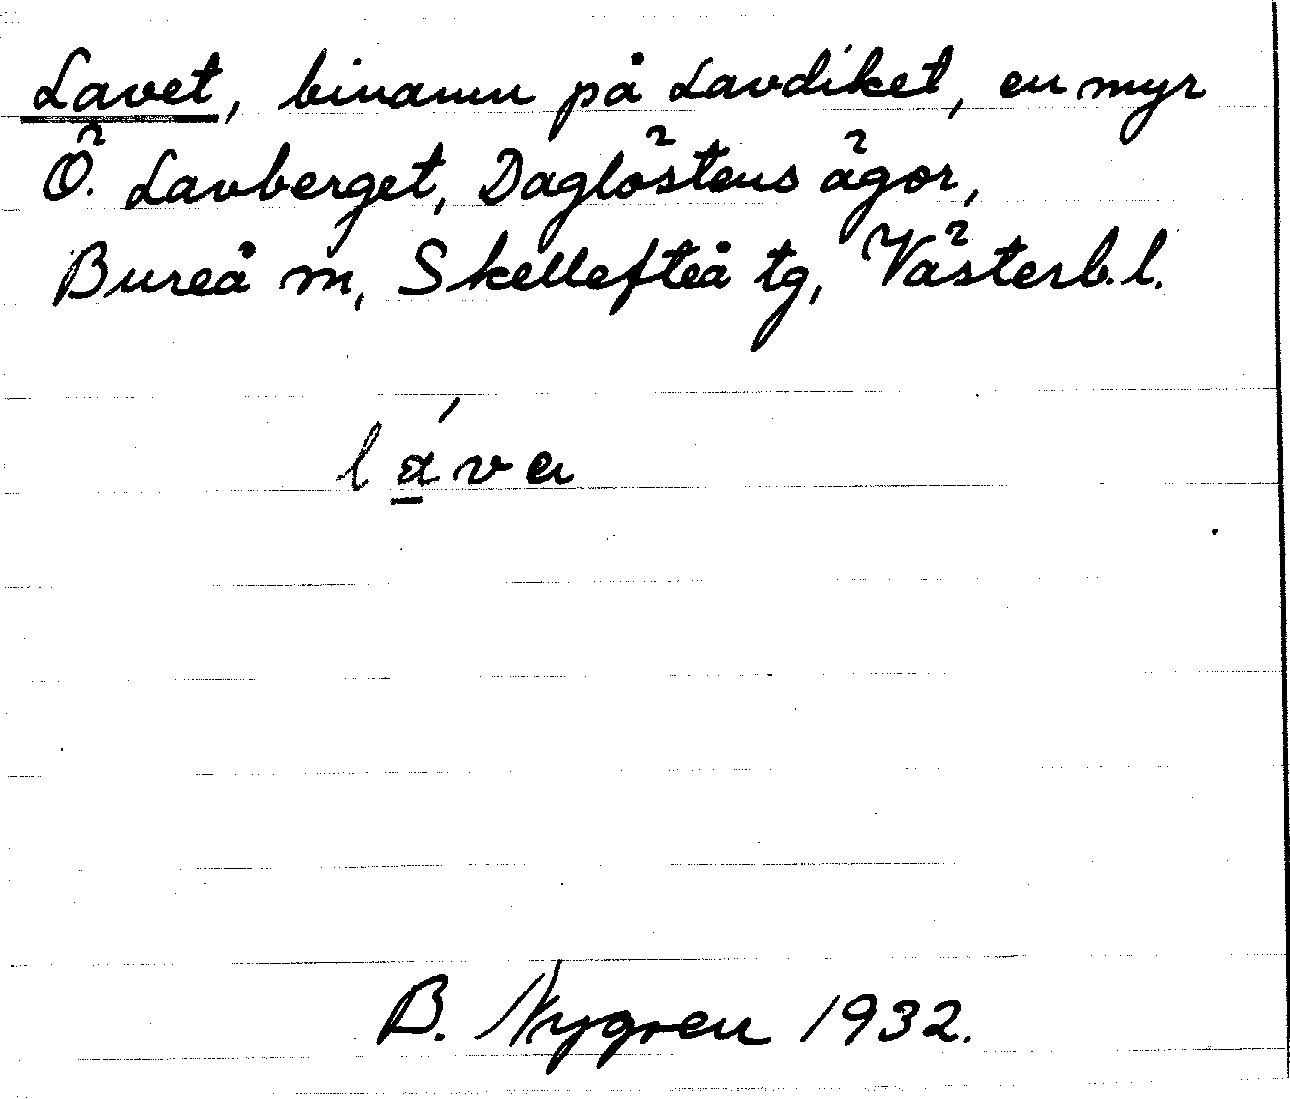 Lavet, binamn på Lavdiket, en myr
Ö. Lavberget, Daglöstens ägor,
Bureå m, Skellefteå tg, Västerb. l.
láva
B. Nygren 1932.